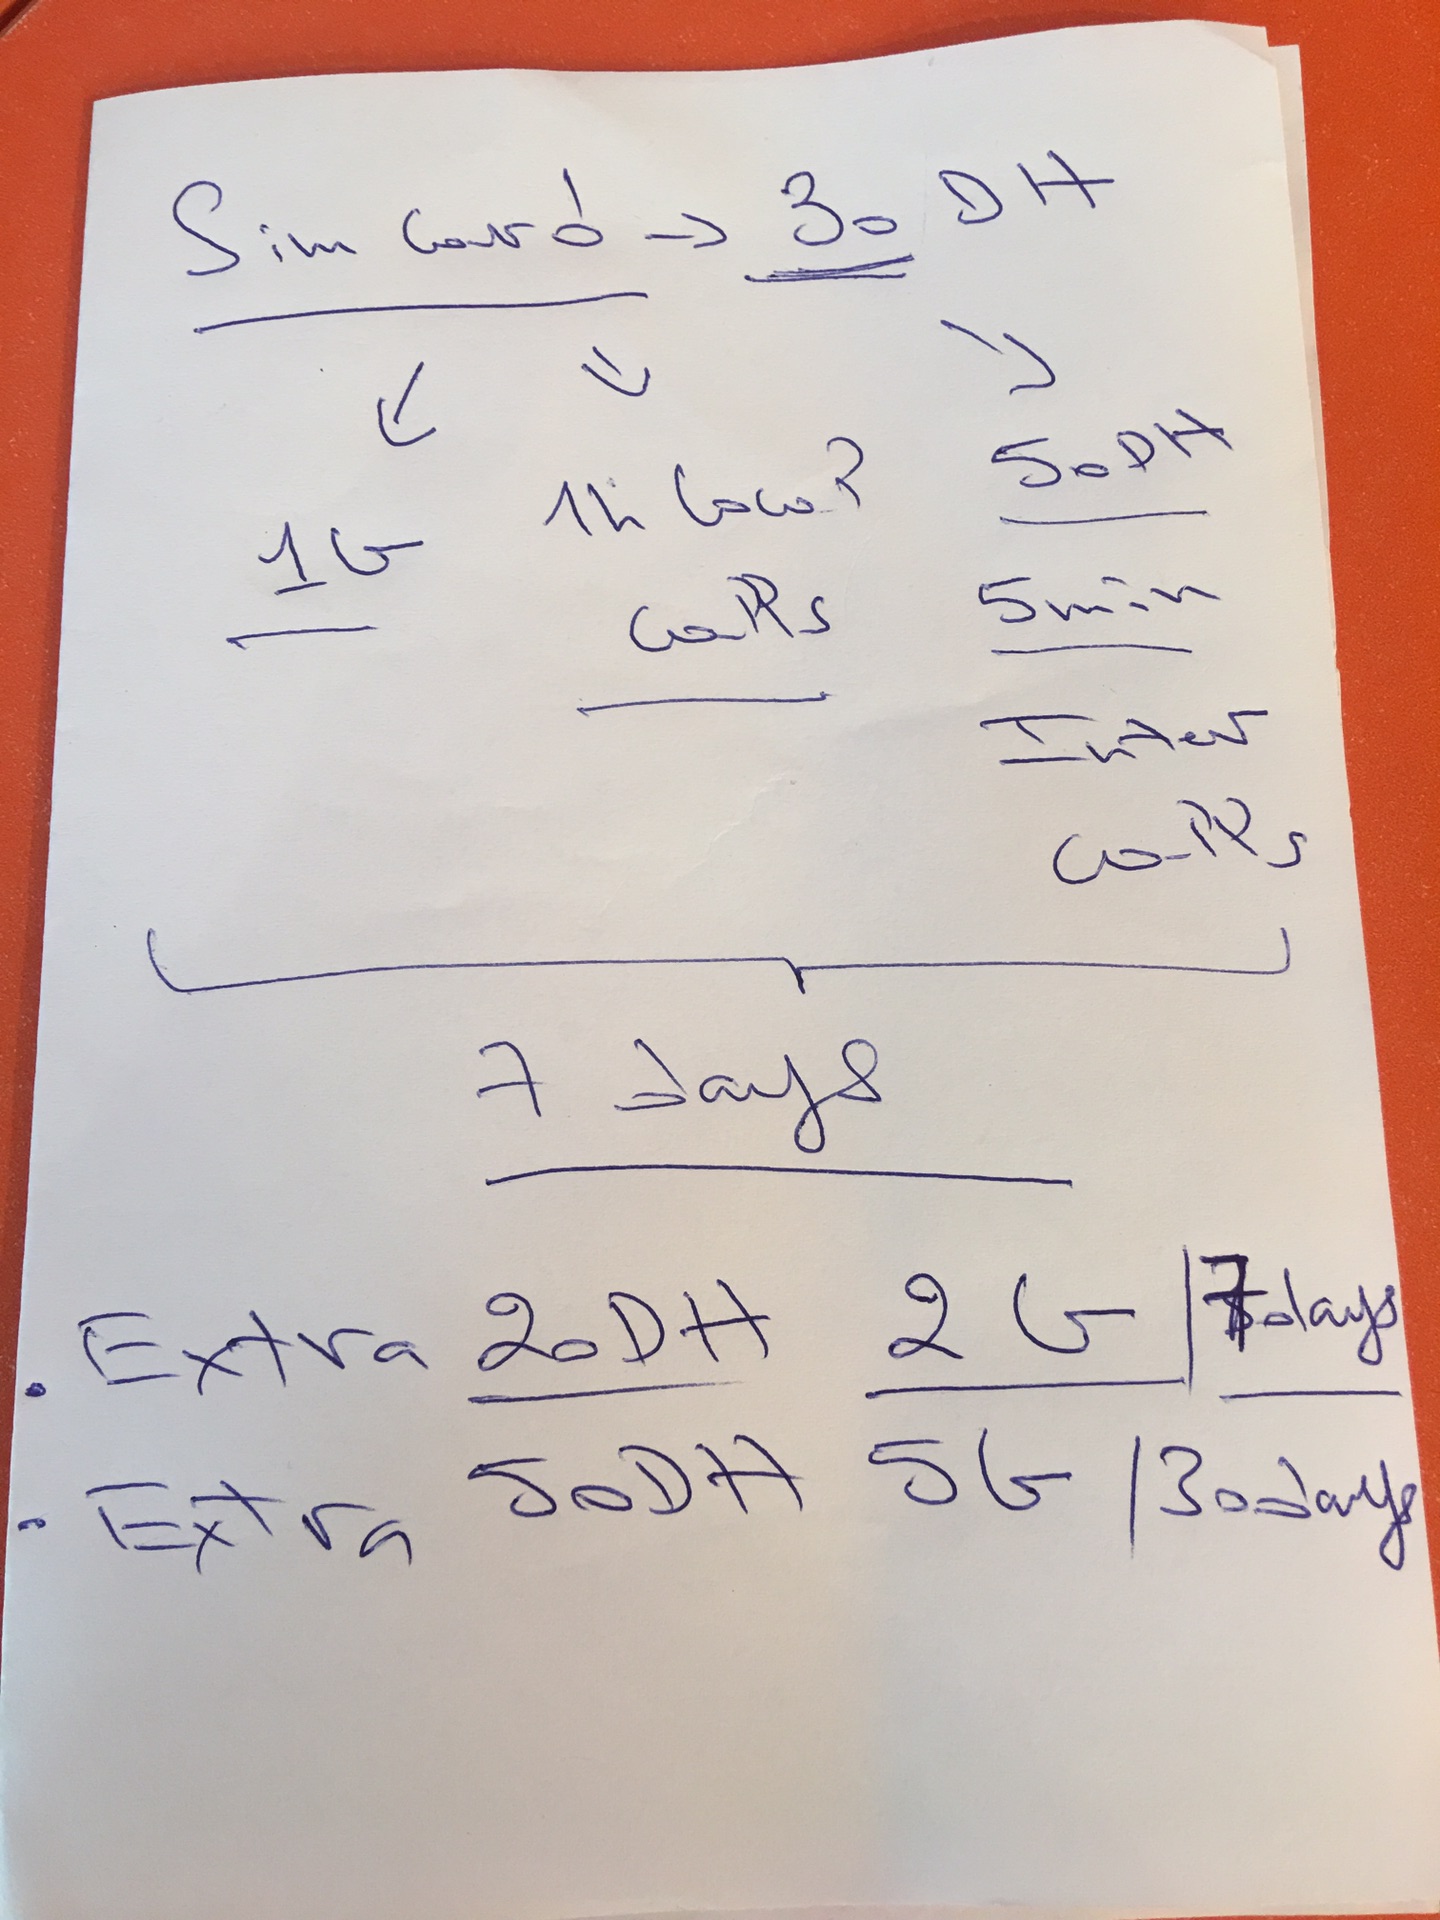 Sim card → 30 DH
1G
1h local
calls
50DH
5min
Inter
calls
7 days
• Extra 20DH 2 G / 7days
• Extra 50DH 5G / 30days